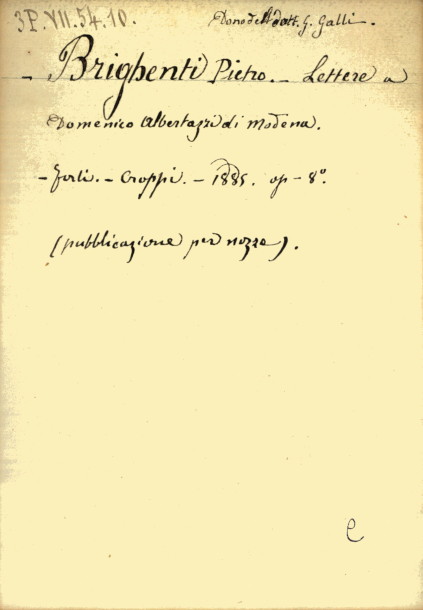 3P.VII.54.10. Dono del dott. G. Galli.
- Brighenti Pietro. - Lettere a
Domenico Albertazzi di Modena.
- Forlì. - Croppi. - 1885. op - 8°.
(pubblicazione per nozze).
e